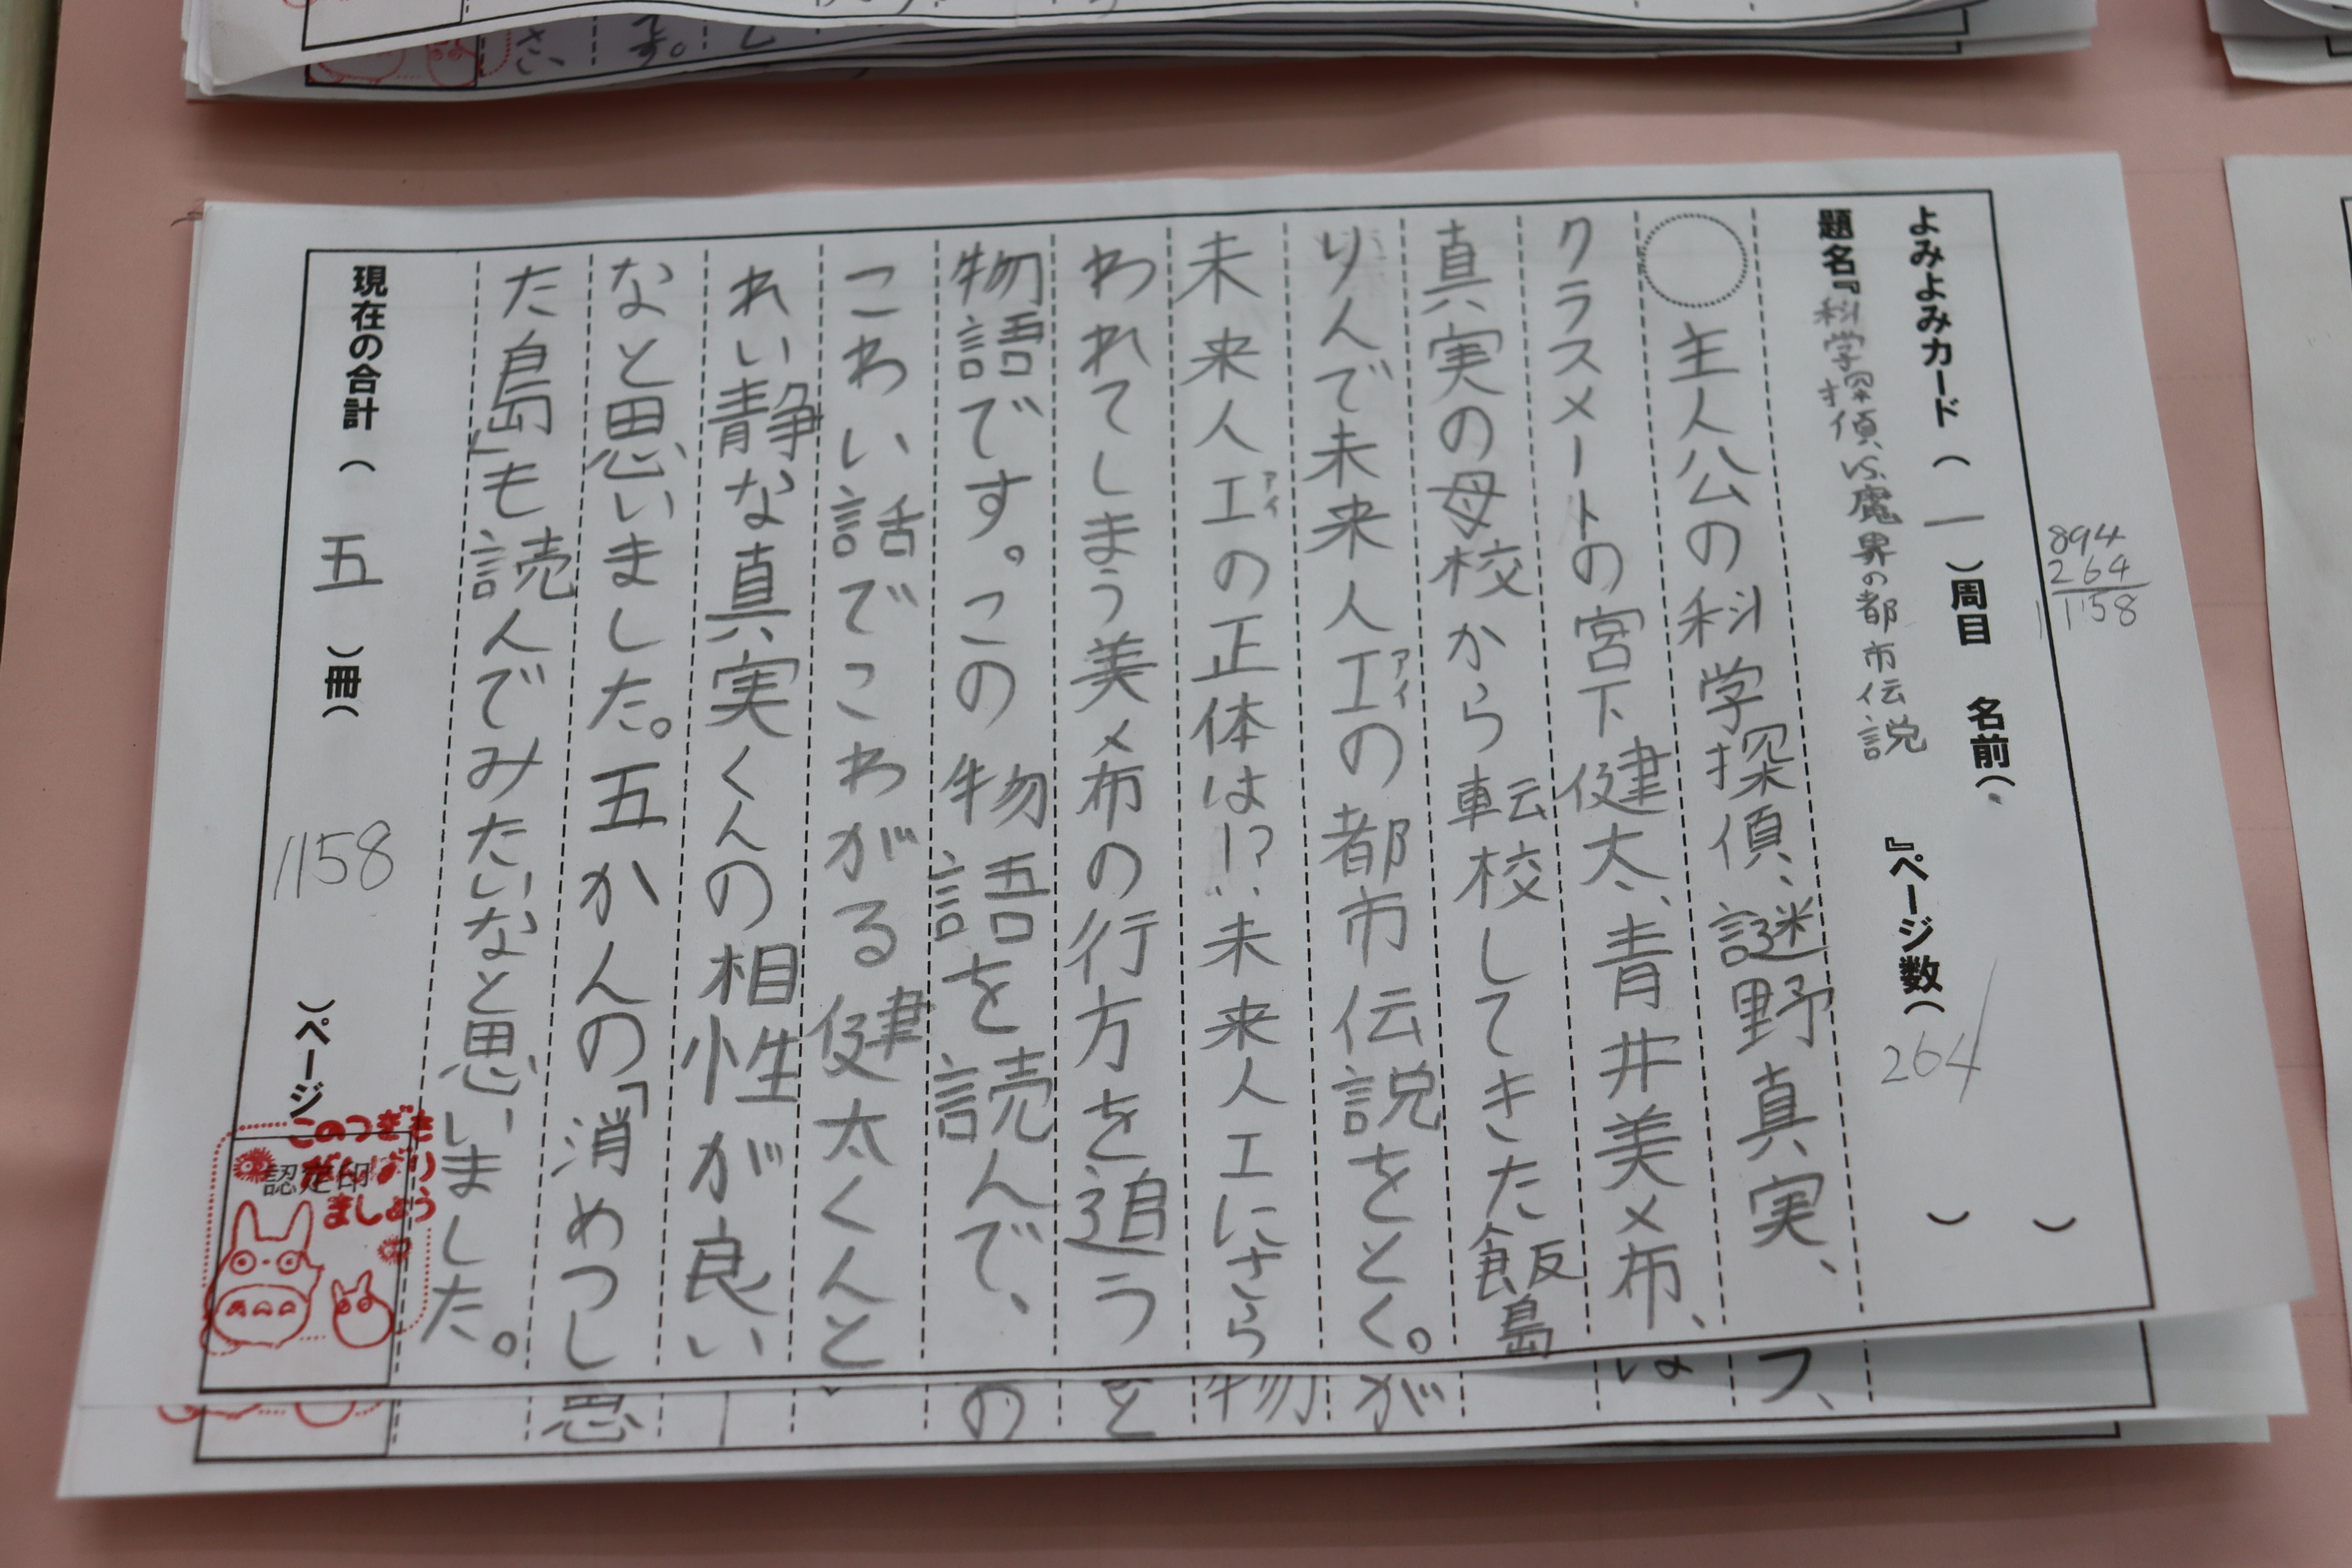 よみよみカード（一）周目 名前（ ）
題名『科学探偵VS.魔界の都市伝説』ページ数（264）
894
264
1158
主人公の科学探偵、謎野真実、
クラスメートの宮下健太、青井美メ布、
真実の母校から転校してきた飯島
りんで未来人エの都市伝説をとく。
アイ
未来人エの正体は!?…未来人エにさら
アイ
われてしまう美メ布の行方を追う
物語です。この物語を読んで、
こわい話でこわがる健太くんと
れい静な真実くんの相性が良い
なと思いました。五かんの「消めつし
た島」も読んでみたいなと思いました。
現在の合計（五）冊（1158）ページ
認定印
このつぎも
がんばり
ましょう